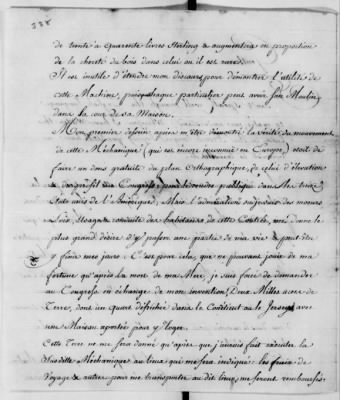 338
de trente à quarente livres Sterling & augmentera en proportion
de la cherté du bois dans celui ou il est rare.
Il est inutile d'étendre mon discours pour démontrer l'utilité de
cette Machine, puisque chaque particulier peut avoir son Moulin
dans la cour de sa Maison.
Mon premier dessein après m'être démontré la vérité du mouvement
de cette Méchanique (qui est encore inconnue en Europe) etoit de
faire un don gratuit du plan Orthographique, de celui d'élévation
& du profil au Congress, pour le rendre publique dans les treize
Etats unis de l'Amérique; Mais l'admiration au sujet des moeurs
Loix, Usages & conduite des habitans de cette Contrée, me donne le
plus grand désire d'y passer une partie de ma vie & peut-être
y finir mes jours. C'est pour cela, que ne pouvant jouir de ma
fortune qu'après la mort de ma Mere, je suis forcé de demander
au Congress en échange de mon invention, Deux Milles acres de
Terre, dont un quart défriché dans le Connecticut ou le Jersey avec
une Maison aportée pour y loger.
Cette Terre ne me sera donné qu'après que j'aurais fait exécuter la
susditte Méchanique au lieux qui me sera indiqué: les fraix de
Voyage & autres pour me transporter au dit lieux, me seront remboursés